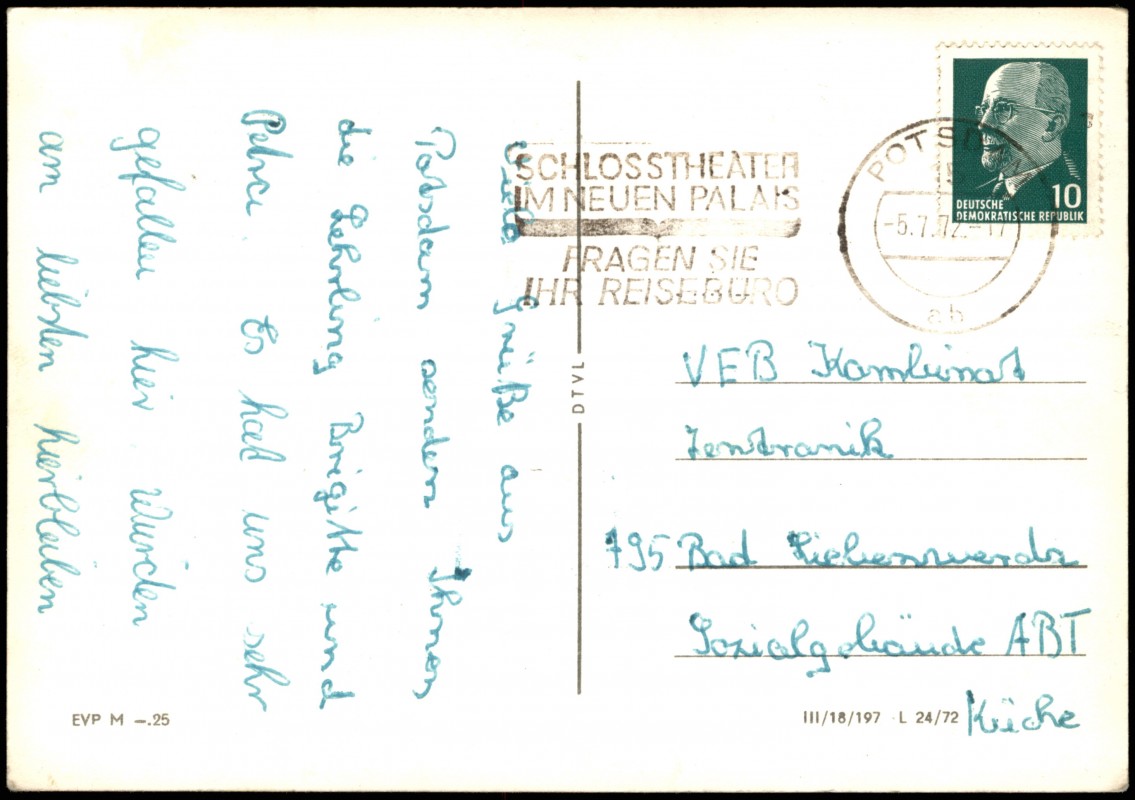 Viele Grüße aus
Potsdam senden Ihnen
die Lehrling Brigitte und
Petra. Es hat uns sehr
gefallen hier wurden
am liebsten hierbleiben
SCHLOSSTHEATER
IM NEUEN PALAIS
FRAGEN SIE
IHR REISEBÜRO
POTSDAM
-5.7.72.-17
ab
10
DEUTSCHE
DEMOKRATISCHE REPUBLIK
DTVL
VEB Kombinat
Zentronik
795 Bad Liebenwerda
Sozialgebäude ABT
Küche
EVP M —.25
III/18/197 L 24/72